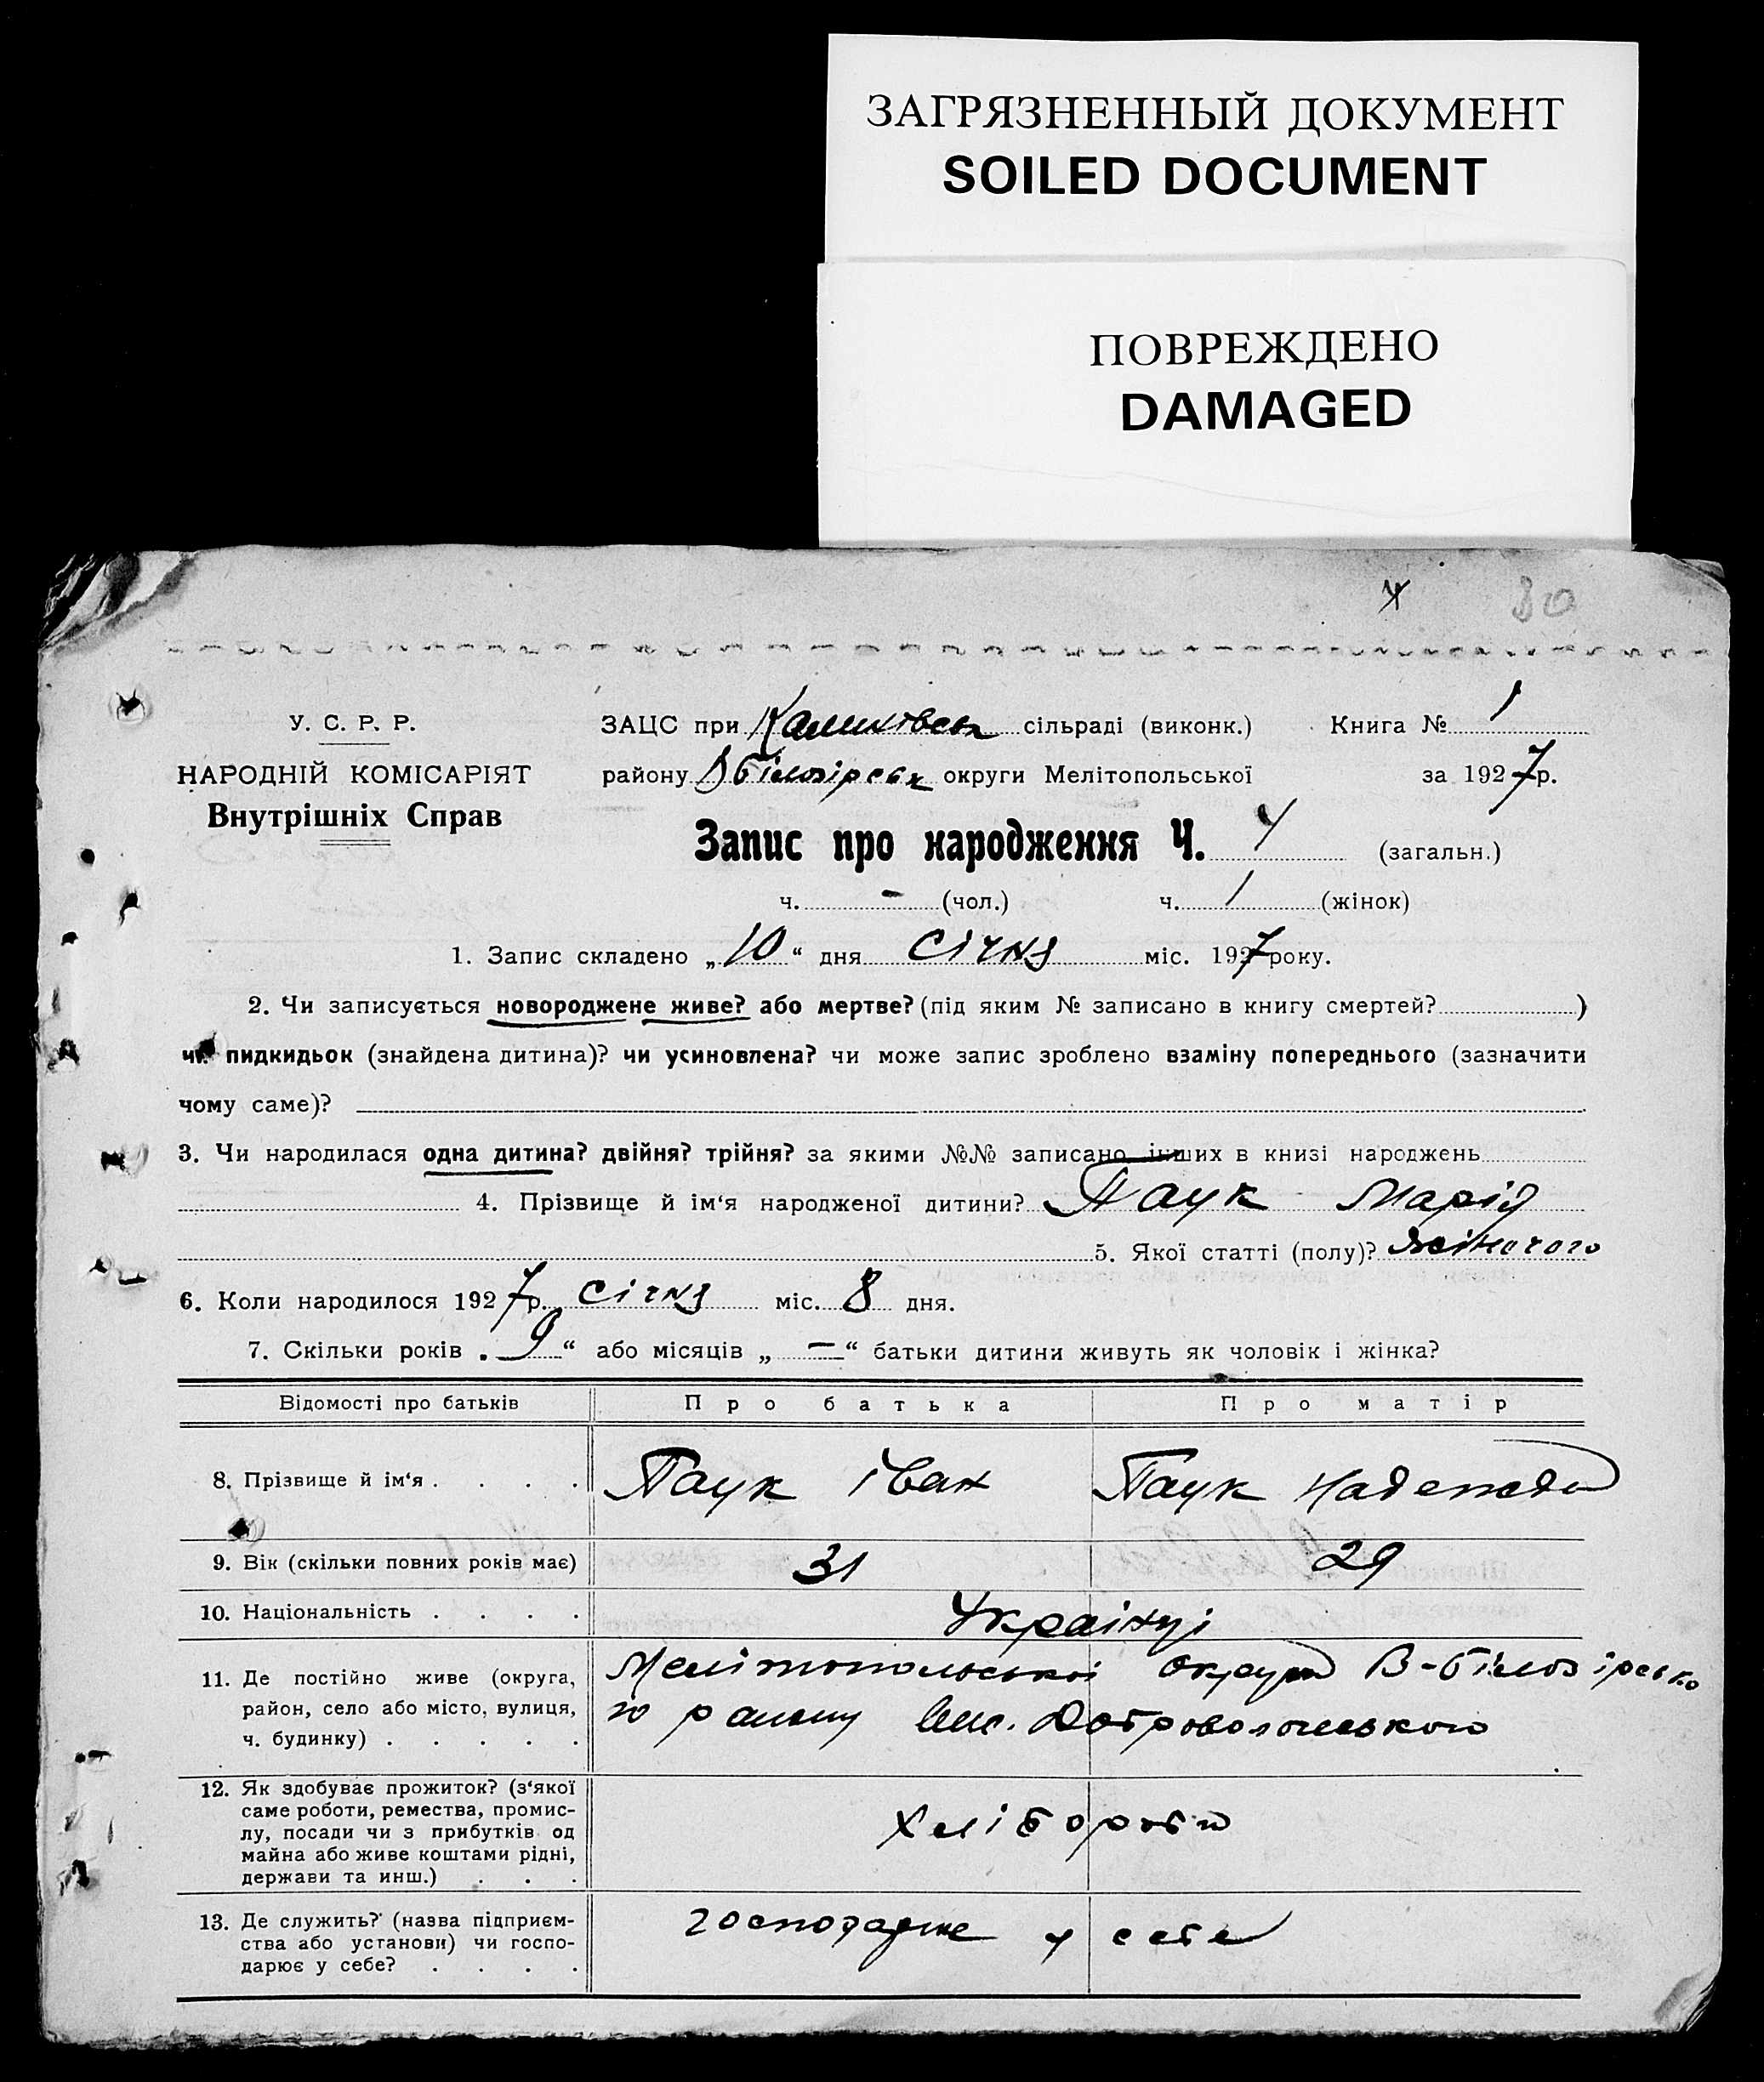 ЗАГРЯЗНЕННЫЙ ДОКУМЕНТ
SOILED DOCUMENT
ПОВРЕЖДЕНО
DAMAGED
30
У. С. Р. Р.
НАРОДНІЙ КОМІСАРІЯТ
Внутрішніх Справ
ЗАЦС при сільраді (виконк.) Книга № 1
району Вбілозірськ округи Мелітопольської за 1927р.
Запис про народження Ч. 4 (загальн.)
ч. - (чол.) ч. 1 (жінок)
1. Запис складено „10“ дня Січня міс. 1927 року.
2. Чи записується новороджене живе? або мертве? (під яким № записано в книгу смертей? )
чи пидкидьок (знайдена дитина)? чи усиновлена? чи може запис зроблено взаміну попереднього (зазначити
чому саме)?
3. Чи народилася одна дитина? двійня? трійня? за якими №№ записано інших в книзі народжень
4. Прізвище й ім‘я народженої дитини? Паук Марія
5. Якої статті (полу)? жіночого
6. Коли народилося 1927р. Січня міс. 8 дня.
7. Скільки років „9“ або місяців „—“ батьки дитини живуть як чоловік і жінка?
Відомості про батьків Про батька Про матір
8. Прізвище й ім‘я . . . . Паук Іван Паук Надежда
9. Вік (скільки повних років має) 31 29
10. Національність . . . . Українці
11. Де постійно живе (округа,
район, село або місто, вулиця,
ч. будинку) . . . . .
Мелітопольської округи В-білозірсько
го району
12. Як здобуває прожиток? (з‘якої
саме роботи, ремества, промис-
лу, посади чи з прибутків од
майна або живе коштами рідні,
держави та инш.) . . .
хлібороби
13. Де служить? (назва підприєм-
ства або установи) чи госпо-
дарює у себе? . . . .
господарює у себе